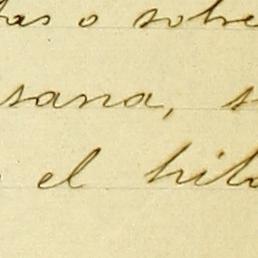 tas o sobre
sana, s
el hilo